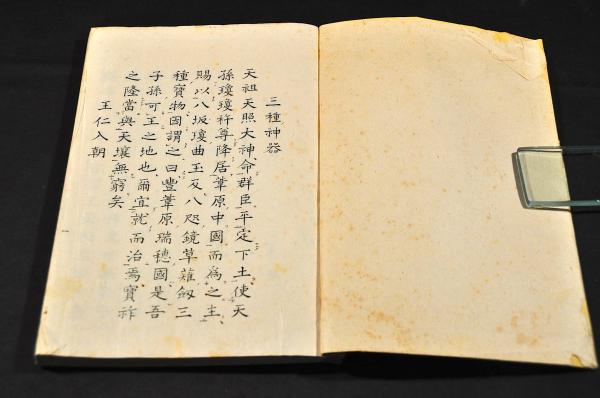 三種神器
天祖天照大神、命群臣平定下土使天
孫瓊瓊杵尊降居葦原中國而為之主
賜以八坂瓊曲玉及八咫鏡草薙劔三
種寶物因謂之曰豐葦原瑞穗國是吾
子孫可王之地也爾宜就而治焉寶祚
之隆當與天壤無窮矣
王仁入朝